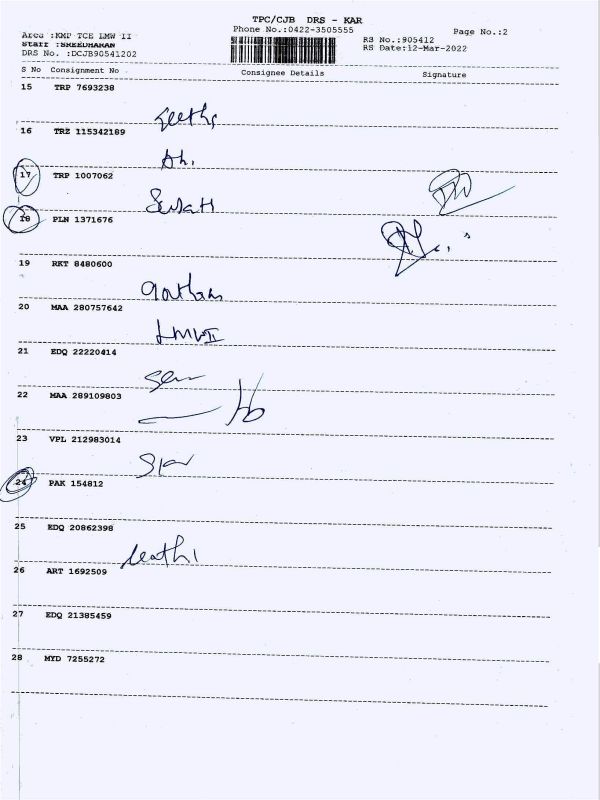 TPC/CJB DRS - KAR
Phone No.:0422-3505555
Page No.:2
Area :KMP TCE LMW II
Staff :SREEDHARAN
RS No.:905412
DRS No. :DCJB90541202
RS Date:12-Mar-2022
S No Consignment No Consignee Details Signature
15 TRP 7693238
Geetha
16 TRZ 115342189
17 TRP 1007062
18 PLN 1371676
19 RKT 8480600
Gowtham
20 MAA 280757642
LMW II
21 EDQ 22220414
22 MAA 289109803
23 VPL 212983014
24 PAK 154812
25 EDQ 20862398
26 ART 1692509
27 EDQ 21385459
28 MYD 7255272